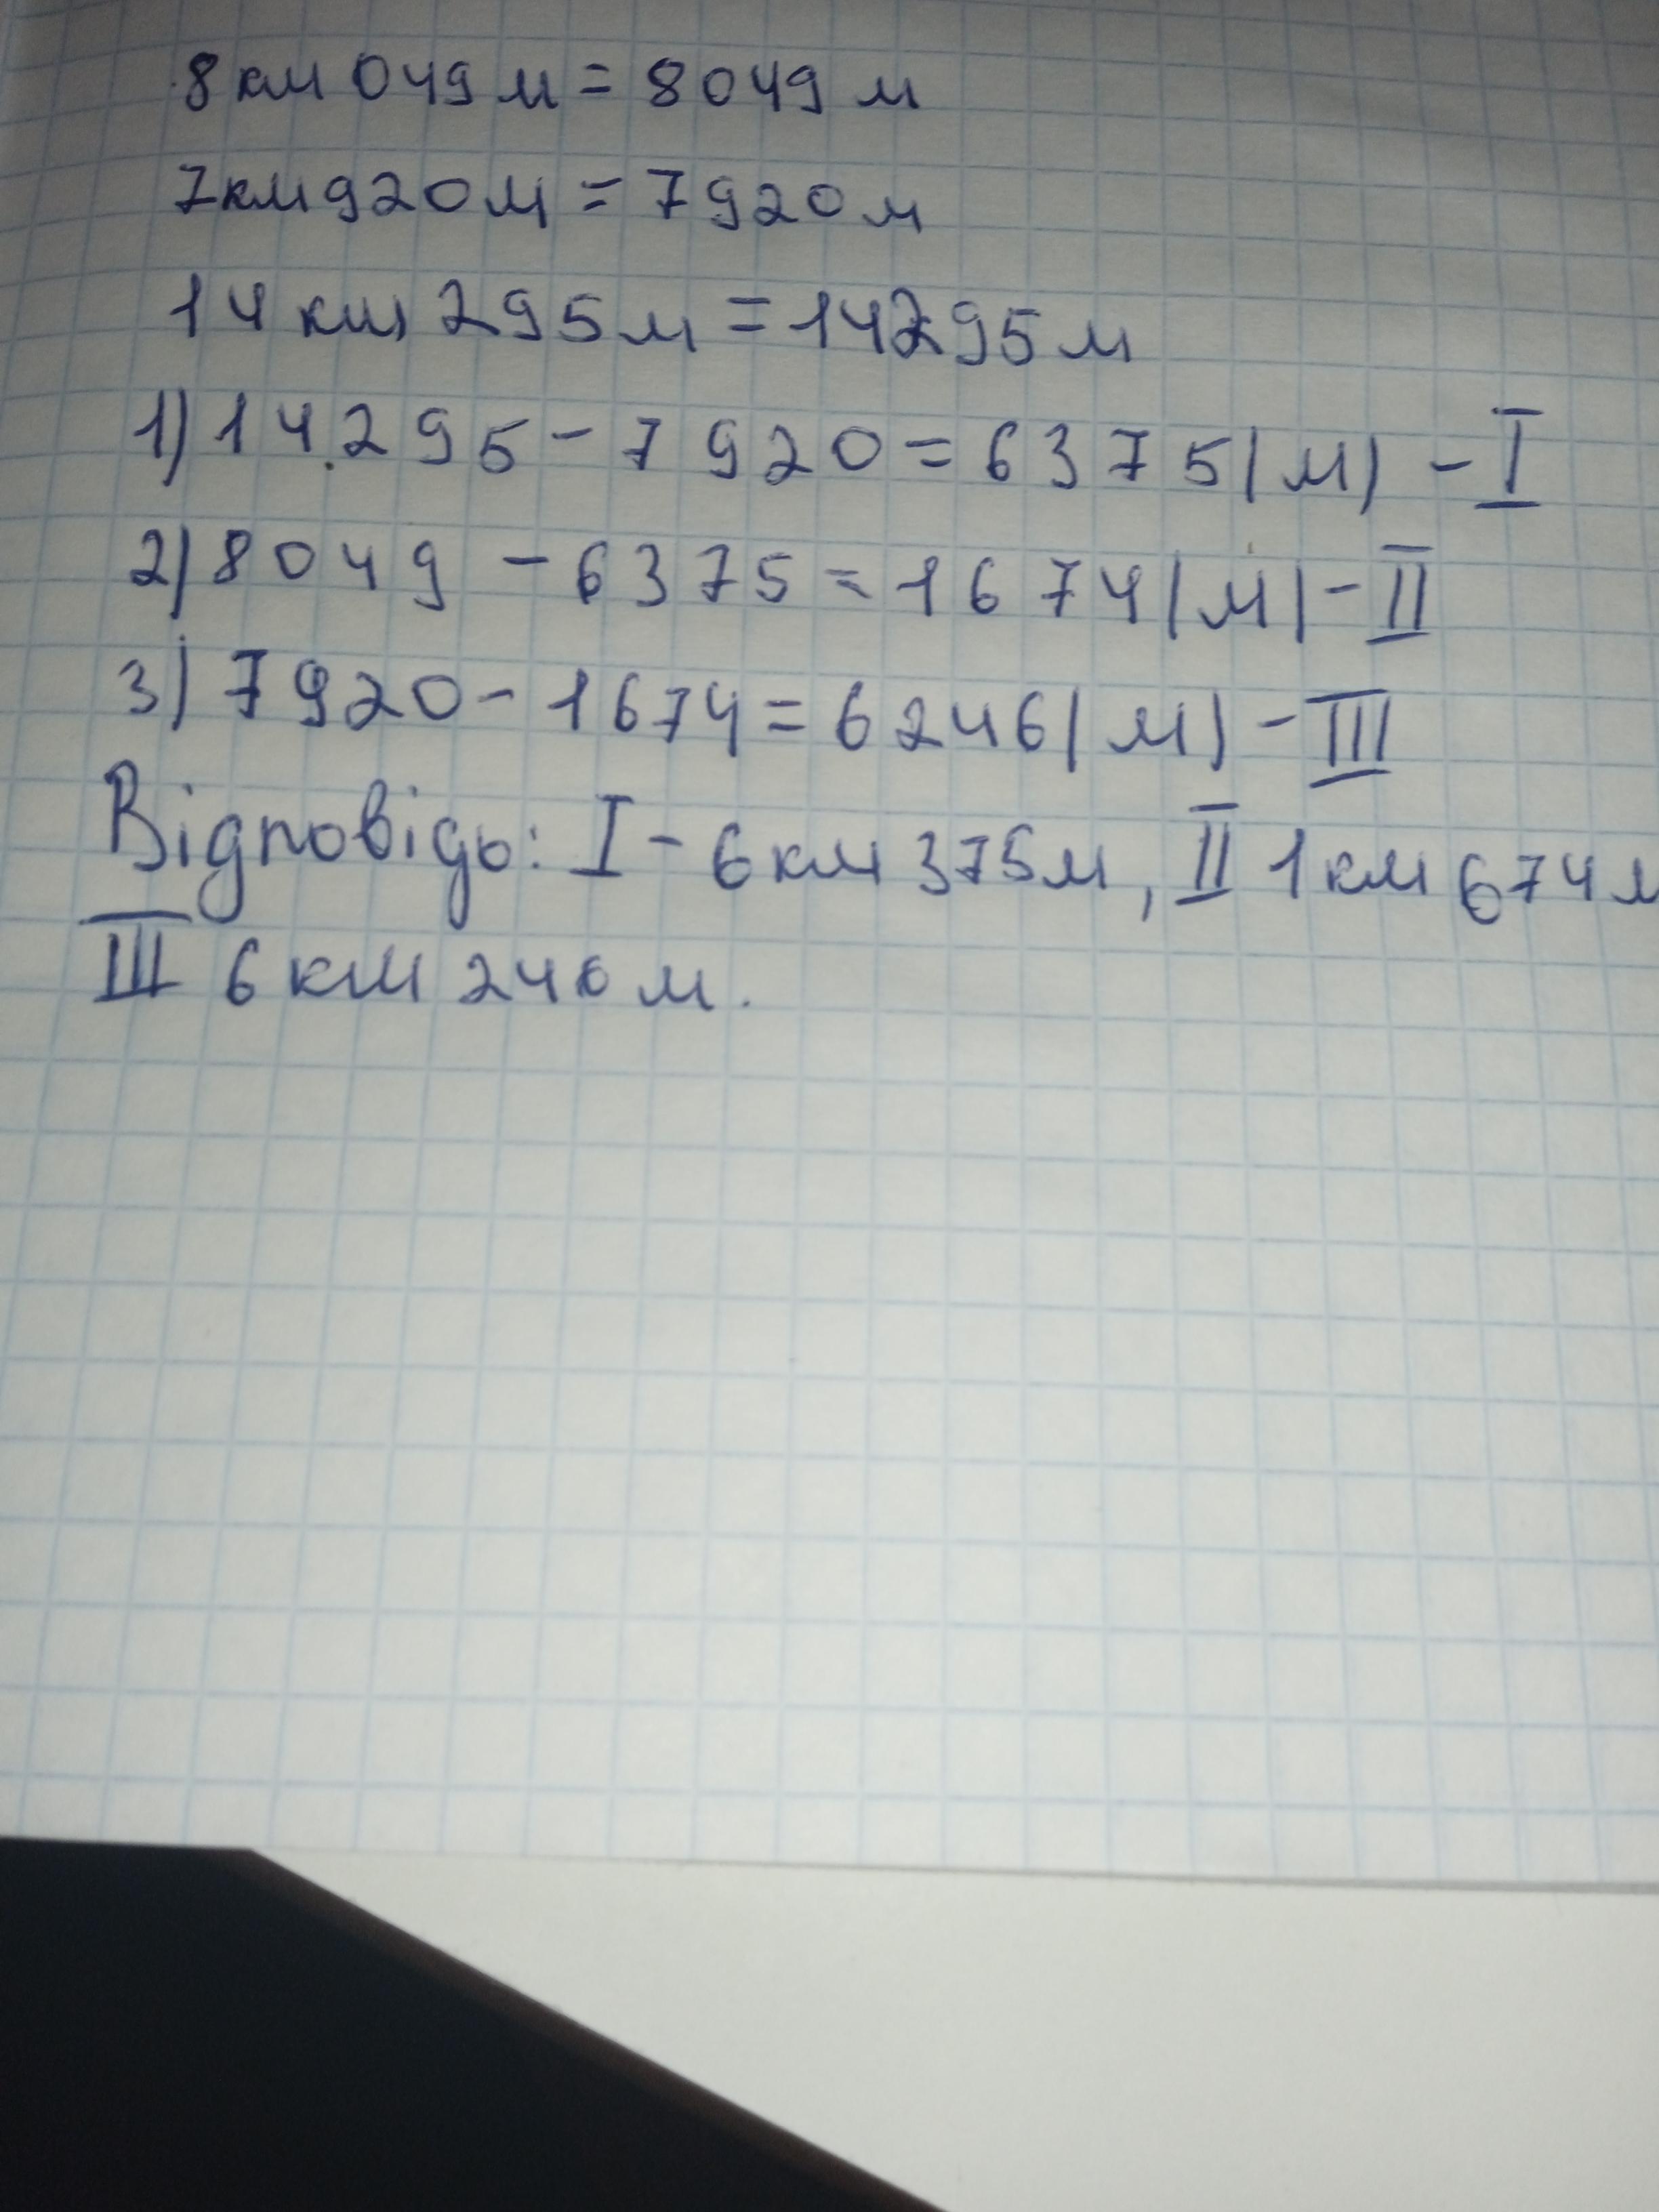 8 км 049 м = 8049 м
7 км 920 м = 7920 м
14 км 295 м = 14295 м
1) 14.295 - 7920 = 6375 (м) - I
2) 8049 - 6375 = 1674 (м) - II
3) 7920 - 1674 = 6246 (м) - III
Відповідь: I - 6 км 375 м, II 1 км 674 м
III 6 км 246 м.